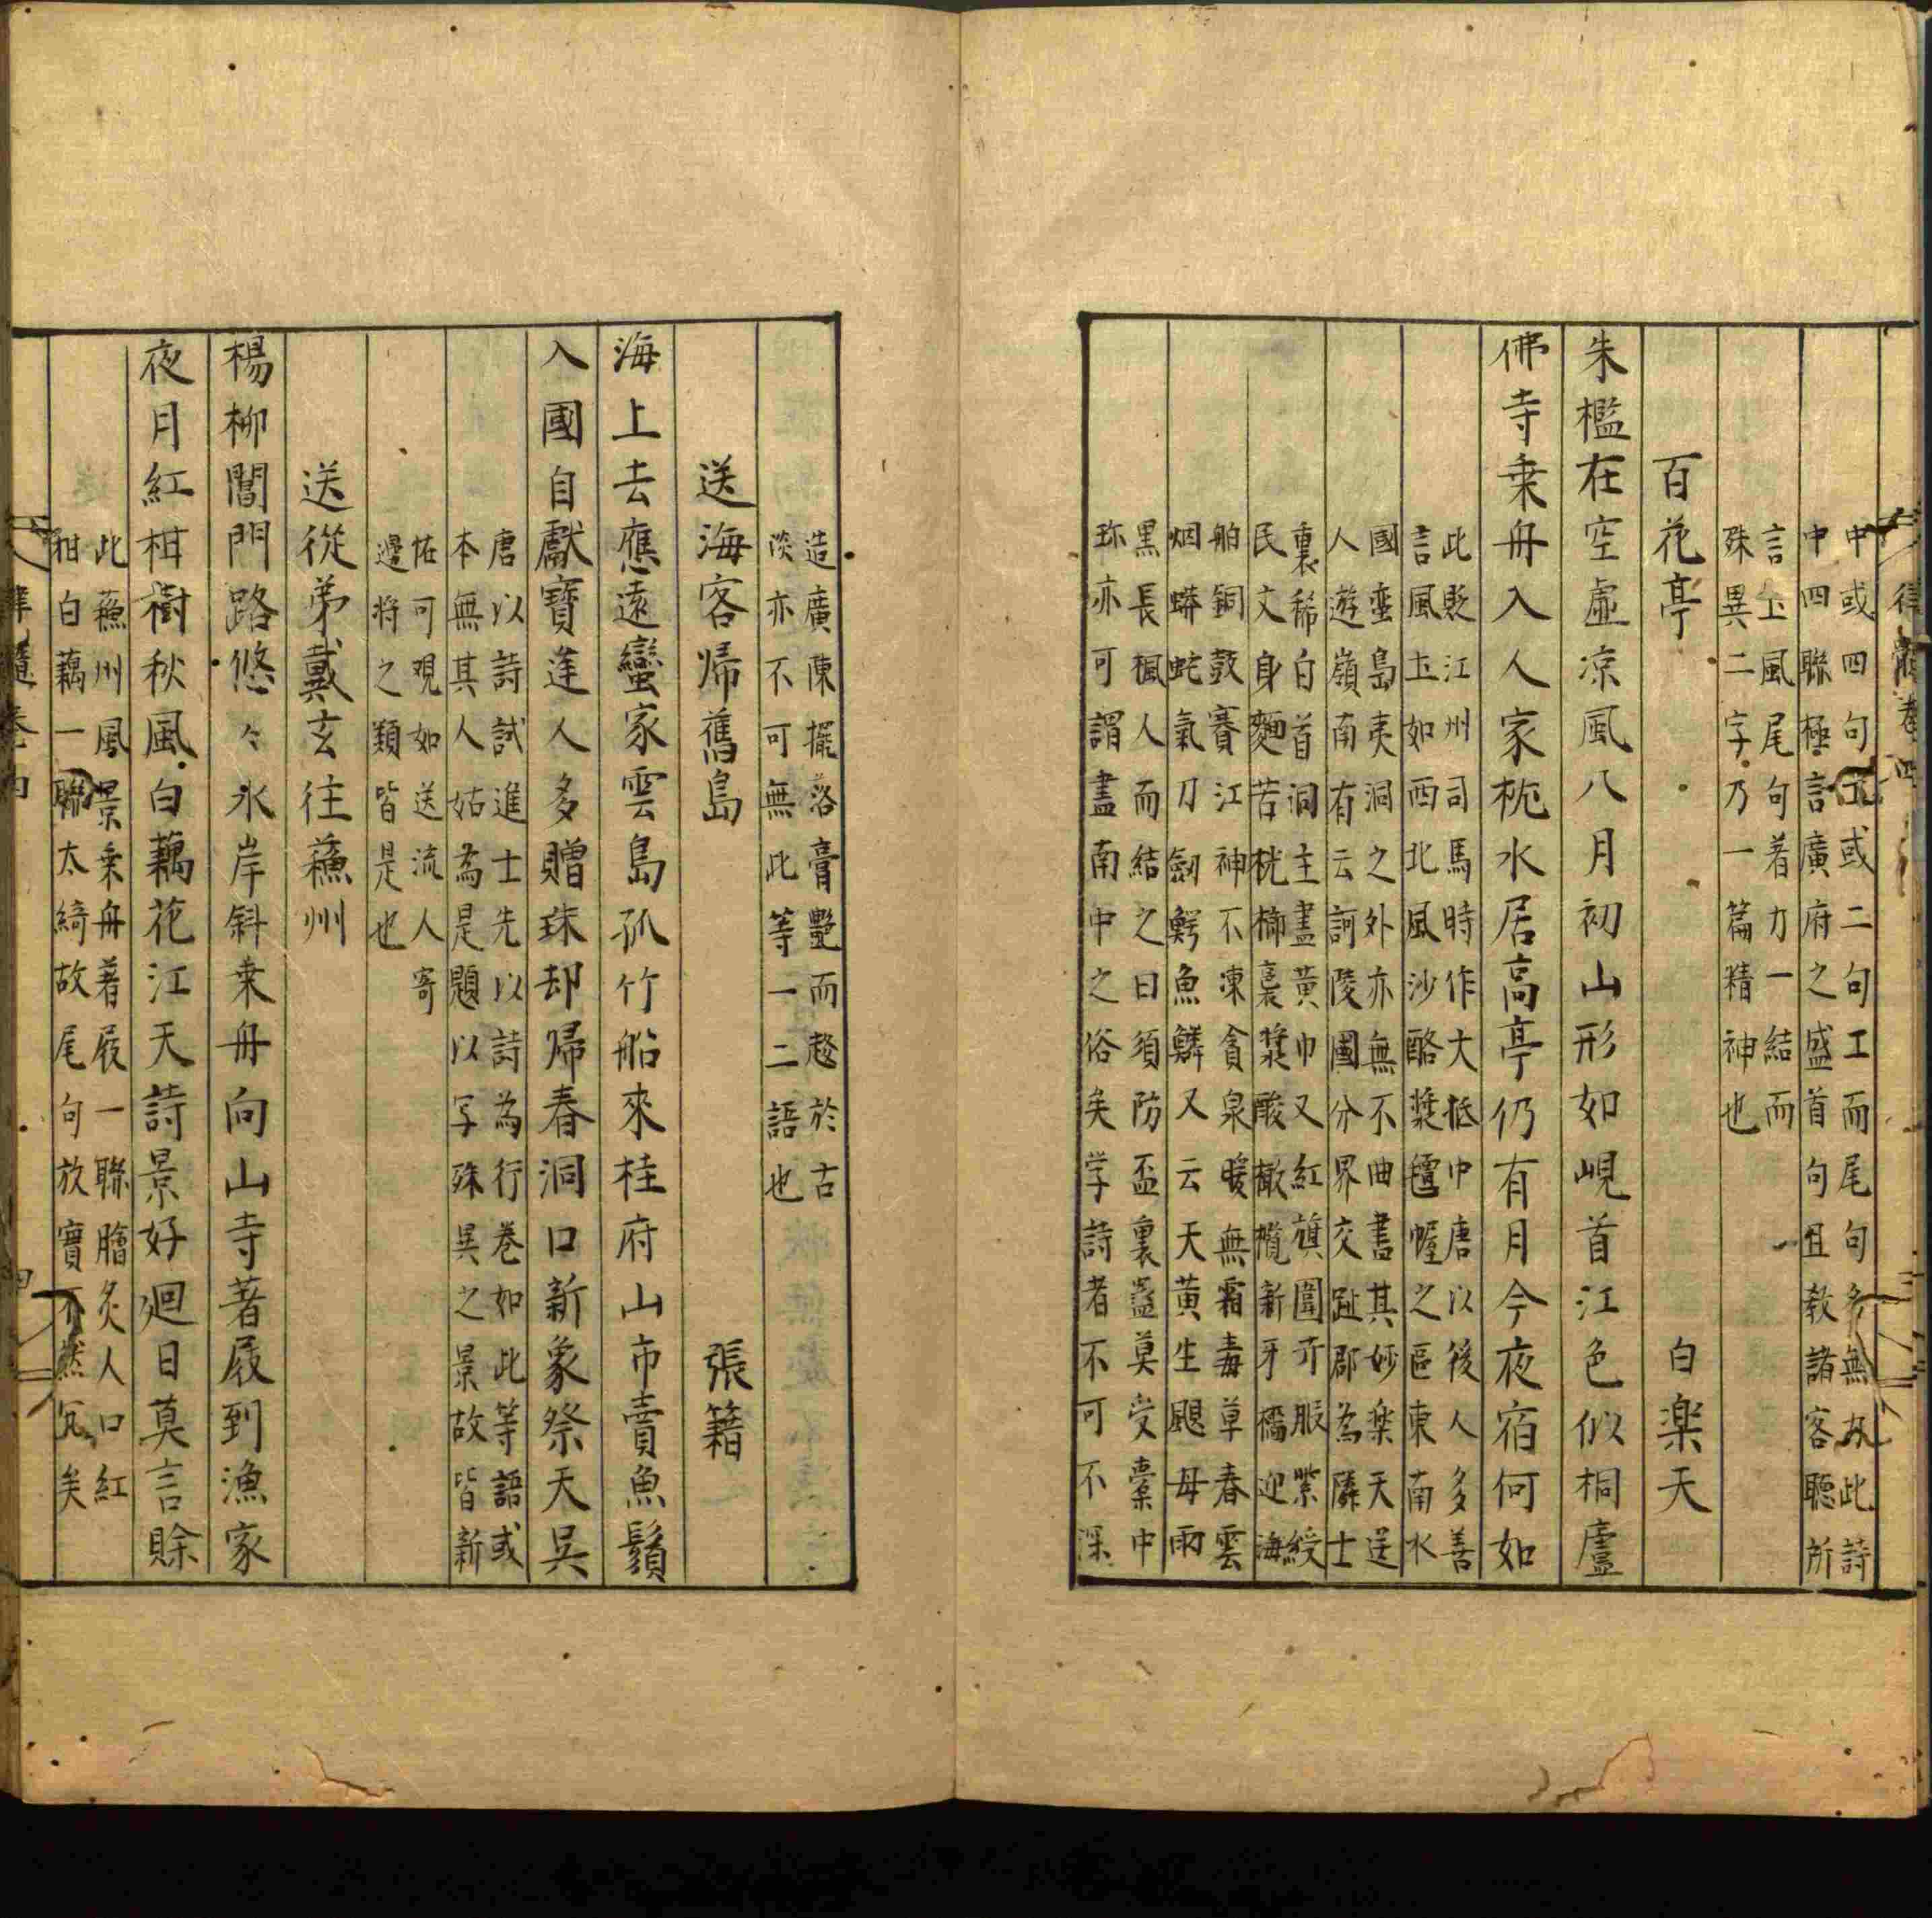 中或四句工或二句工而尾句多無力此詩
中四聯極言廣府之盛首句且教諸客聽所
言土風尾句着力一結而
殊異二字乃一篇精神也
百花亭　白楽天
朱檻在空虛凉風八月初山形如峴首江色似桐廬
佛寺乗舟入人家枕水居高亭仍有月今夜宿何如
此貶江州司馬時作大低中唐以後人多善
言風土如西北風沙酪漿氊幄之區東南水
國蛮島夷洞之外亦無不曲書其妙楽天送
人遊嶺南有云訶陵國分界交趾郡為隣士
裏稀白首洞主盡黃巾又紅旗圍卉服紫綬
民文身麺苦桄榔裛漿酸橄欖新牙檣迎海
舶銅鼓賽江神不凍貪泉暖無霜毒草春雲
烟蟒蛇氣刀劔鰐魚鱗又云天黃生颶母雨
黑長楓人而結之曰須防盃裏蠱莫受槖中
珎亦可謂盡南中之俗矣学詩者不可不深
造廣陳擺落膏艷而趍於古
淡亦不可無此等一二語也
送海客帰舊島　張籍
海上去應遠蠻家雲島孤竹船來桂府山市賣魚鬚
入國自獻寶逢人多贈珠却帰春洞口新象祭天吳
唐以詩試進士先以詩為行卷如此等語或
本無其人姑為是題以写殊異之景故皆新
恠可观如送流人寄
邊将之類皆是也
送從弟戴玄往蘓州
楊柳閶門路悠々水岸斜乗舟向山寺著屐到漁家
夜月紅柑樹秋風白藕花江天詩景好廻日莫言賖
此蘓州風景乗舟著屐一聯膾炙人口紅
柑白藕一聯太綺故尾句放實不然冗矣